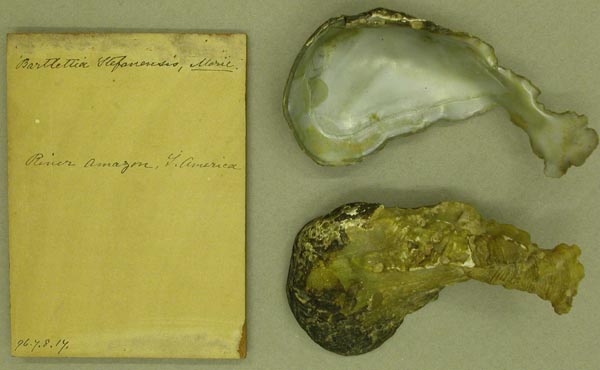 Bartlettia Stefanensis, Moric.
River Amazon, S. America
96.7.8.17.